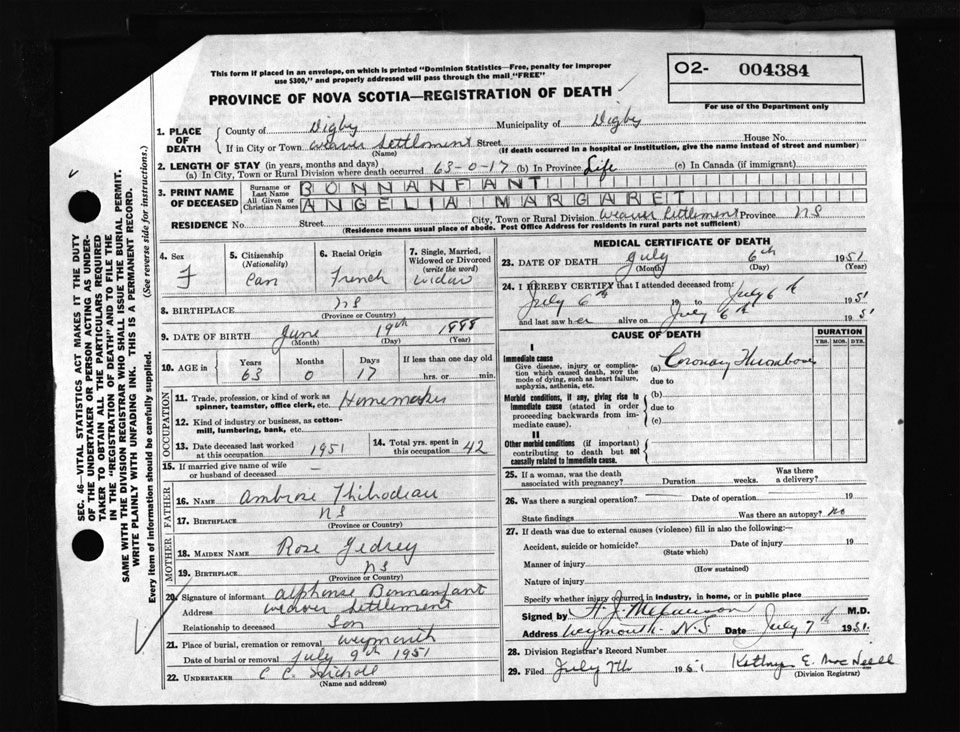 This form if placed in an envelope, on which is printed "Dominion Statistics—Free, penalty for improper
use $300," and properly addressed will pass through the mail "FREE"
O2- 004384
For use of the Department only
PROVINCE OF NOVA SCOTIA—REGISTRATION OF DEATH
1. PLACE OF DEATH
County of Digby Municipality of Digby
If in City or Town Weaver Settlement Street House No.
(Name) (If death occurred in a hospital or institution, give the name instead of street and number)
2. LENGTH OF STAY (in years, months and days)
(a) In City, Town or Rural Division where death occurred 63-0-17 (b) In Province Life (c) In Canada (if immigrant)
3. PRINT NAME OF DECEASED
Surname or Last Name BONNANFANT
All Given or Christian Names ANGELIA MARGARET
RESIDENCE No. Street City, Town or Rural Division Weaver Settlement Province NS
(Residence means usual place of abode. Post Office Address for residents in rural parts not sufficient)
4. Sex F
5. Citizenship (Nationality) Can
6. Racial Origin French
7. Single, Married, Widowed or Divorced (write the word) Widow
8. BIRTHPLACE NS
(Province or Country)
9. DATE OF BIRTH June 19th 1888
(Month) (Day) (Year)
10. AGE in Years 63 Months 0 Days 17 If less than one day old hrs. or min.
OCCUPATION
11. Trade, profession, or kind of work as spinner, teamster, office clerk, etc. Homemaker
12. Kind of industry or business, as cotton-mill, lumbering, bank, etc.
13. Date deceased last worked at this occupation 1951
14. Total yrs. spent in this occupation 42
15. If married give name of wife or husband of deceased —
FATHER
16. NAME Ambrose Thibodeau
17. BIRTHPLACE NS
(Province or Country)
MOTHER
18. MAIDEN NAME Rose Gedrey
19. BIRTHPLACE NS
(Province or Country)
20. Signature of informant Alphonse Bonnanfant
Address Weaver Settlement
Relationship to deceased Son
21. Place of burial, cremation or removal Weymouth
Date of burial or removal July 9th 1951
22. UNDERTAKER C C
(Name and address)
MEDICAL CERTIFICATE OF DEATH
23. DATE OF DEATH July 6th 1951
(Month) (Day) (Year)
24. I HEREBY CERTIFY that I attended deceased from
July 6th 19 to July 6th 1951
and last saw her alive on July 6th 1951
CAUSE OF DEATH
DURATION
YRS. MOS. DYS.
I
Immediate cause
Give disease, injury or complication which caused death, not the mode of dying, such as heart failure, asphyxia, asthenia, etc.
(a) Coronary Thrombosis
due to
Morbid conditions, if any, giving rise to immediate cause (stated in order proceeding backwards from immediate cause).
(b)
due to
(c)
II
Other morbid conditions (if important) contributing to death but not causally related to immediate cause.
25. If a woman, was the death associated with pregnancy? Duration weeks. Was there a delivery?
26. Was there a surgical operation? — Date of operation 19
State findings Was there an autopsy? No
27. If death was due to external causes (violence) fill in also the following:—
Accident, suicide or homicide? Date of injury 19
(State which)
Manner of injury
(How sustained)
Nature of injury
Specify whether injury occurred in industry, in home, or in public place
Signed by M.D.
Address Weymouth N.S Date July 7th 1951
28. Division Registrar's Record Number
29. Filed July 7th 1951 E. MacNeill
(Division Registrar)
SEC. 46—VITAL STATISTICS ACT MAKES IT THE DUTY
OF THE UNDERTAKER OR PERSON ACTING AS UNDER-
TAKER TO OBTAIN ALL THE PARTICULARS REQUIRED
IN THE "REGISTRATION OF DEATH" AND TO FILE THE
SAME WITH THE DIVISION REGISTRAR WHO SHALL ISSUE THE BURIAL PERMIT.
WRITE PLAINLY WITH UNFADING INK. THIS IS A PERMANENT RECORD.
Every item of information should be carefully supplied. (See reverse side for instructions.)